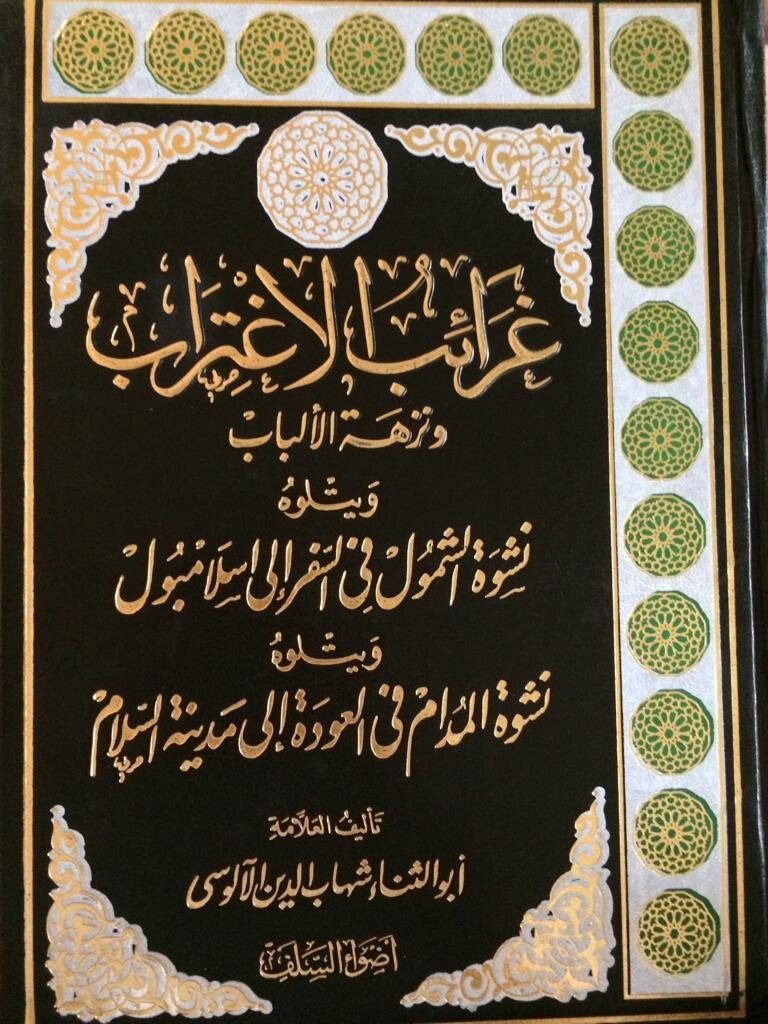 غَرَائبُ الاغْتِرَابْ
ونزهَة الألبابْ
وَيتْلوهُ
نشوَة الشمُولْ في السّفر إلى اسلامبُولْ
وَيتْلوهُ
نشوة المُدامْ في العودَة إلى مَدينة السّلامْ
تأليفُ العَلّامَةِ
أبو الثناء شهاب الدين الآلوسى
أضوَاء السَّلَفْ